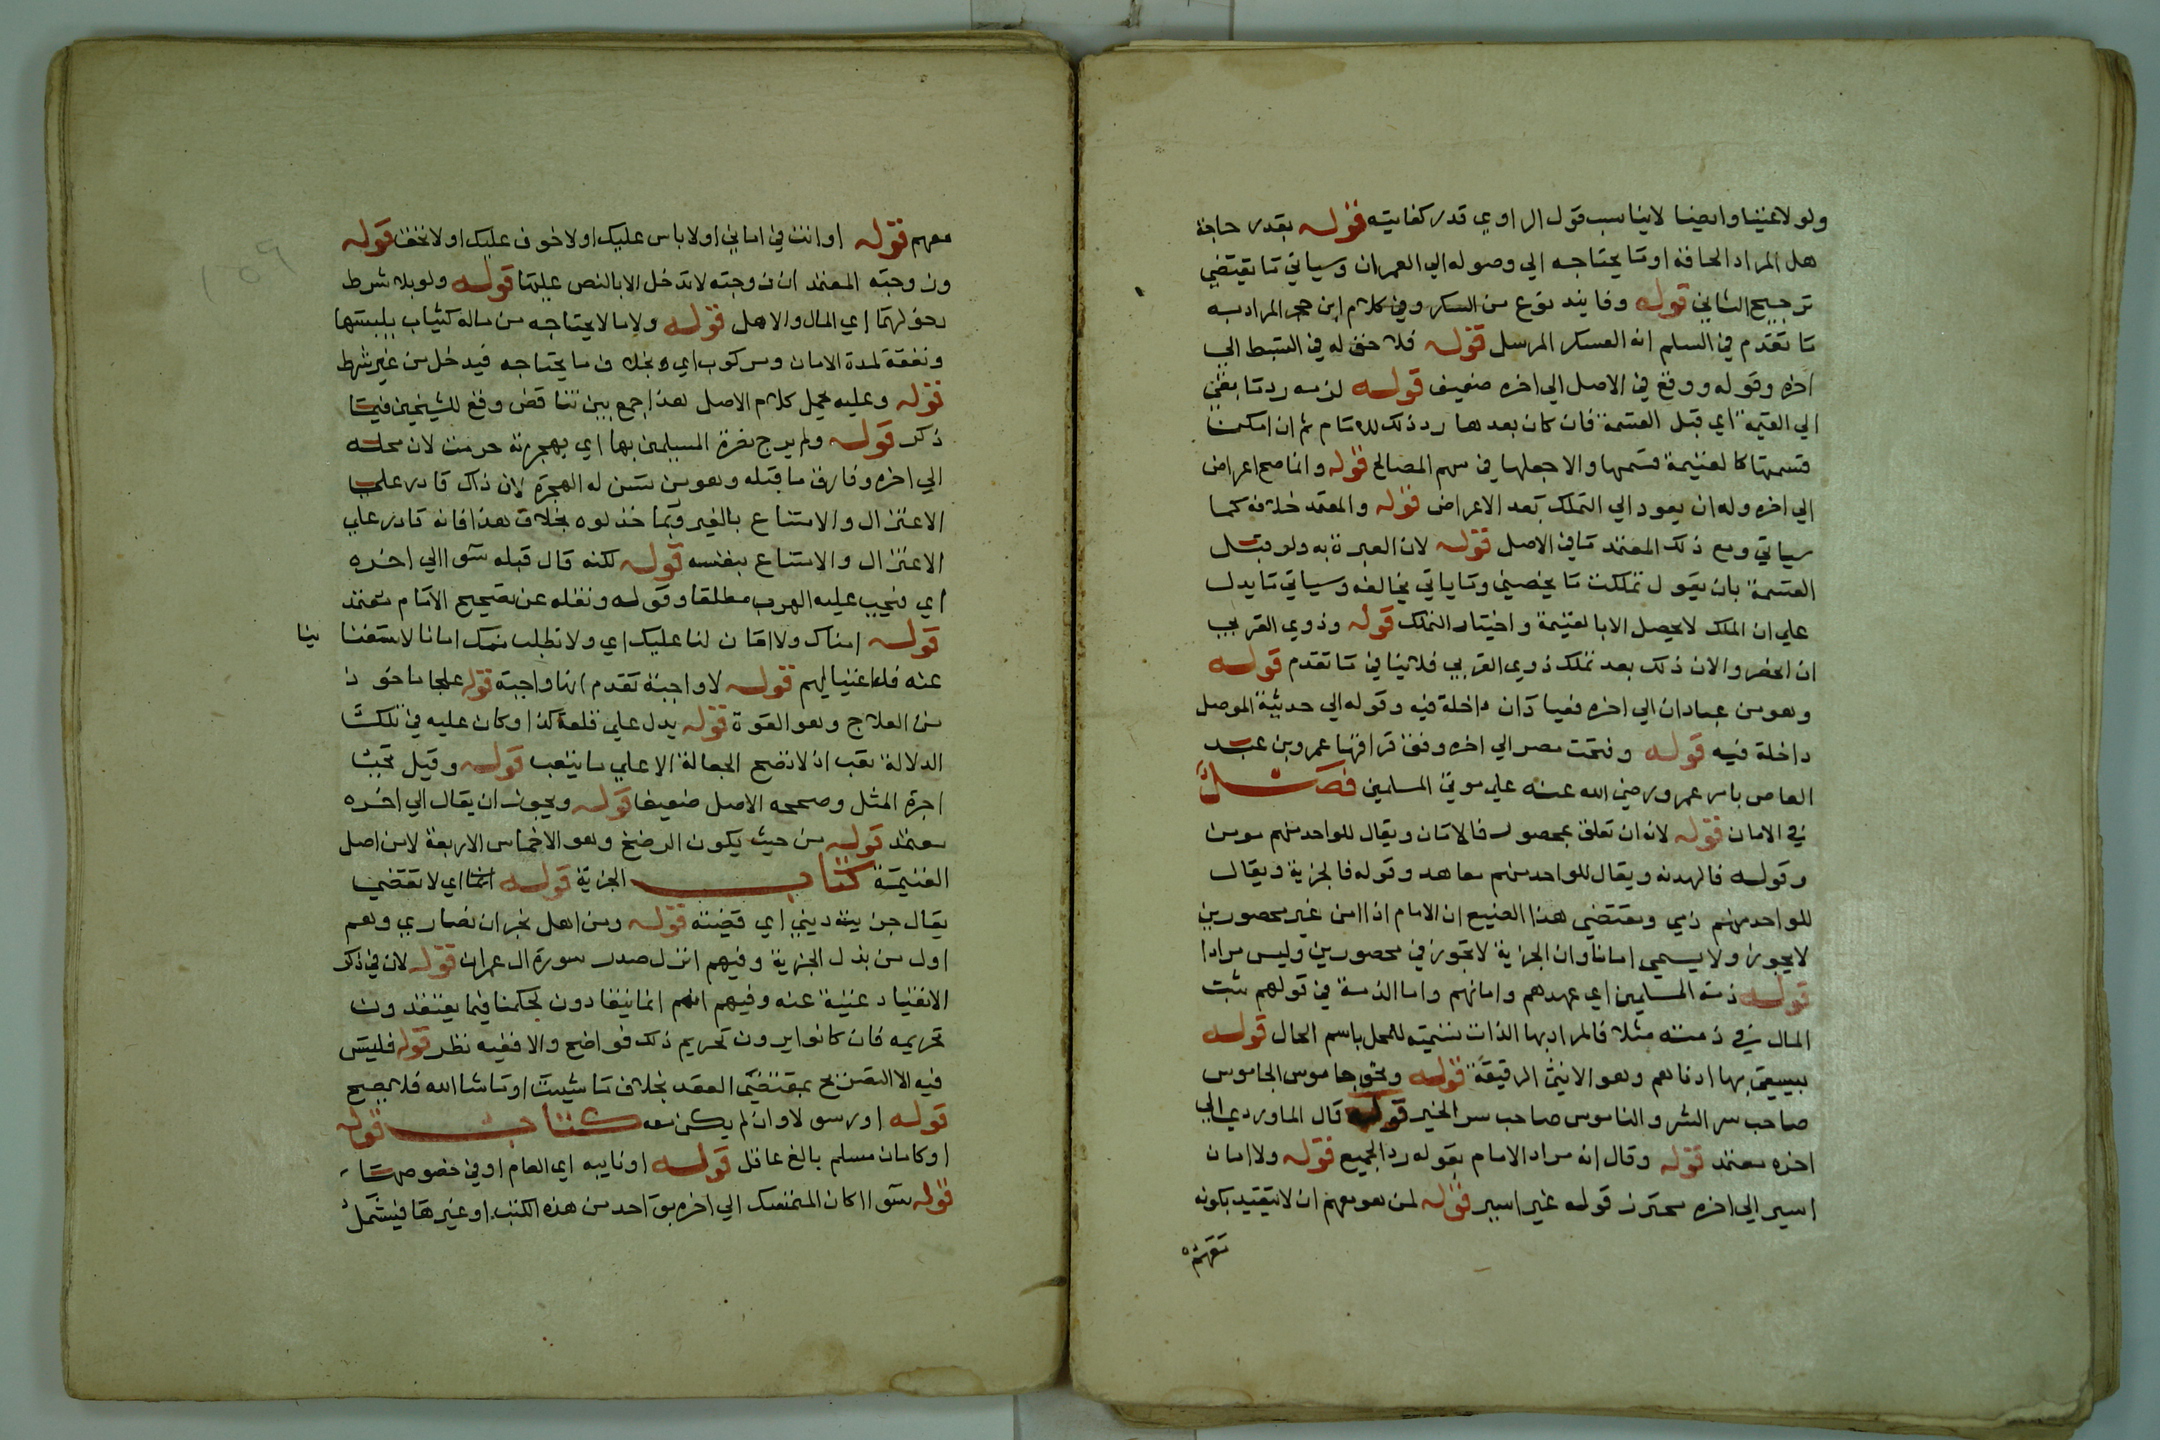 ولو لاغنيا وايضا لايناسب قول الراوي قدر كفايته قوله بقدر حاجة
هل المراد الحاقة او ما يحتاجه الي وصوله الي العمران وسياتي ما يقتضي
ترجيح الثاني قوله وفايند نوع من السكر وفي كلام ابن حجر المراد به
ما تقدم في السلم انه العسكر المرسل قوله فلا حق له في السبط الي
اخره وقوله ووقع في الاصل الي اخره ضعيف قوله لزمه رد ما بقي
الي القيمة اي قبل القسمة فان كان بعدها رد ذلك للامام ثم ان امكن
قسمتها كالغنيمة قسمها والا جعلها في سهم المصالح قوله وانما صح اعراض
الي اخره وله ان يعود الي التملك بعد الاعراض قوله والمعتمد خلافه كما
سياتي ومع ذلك المعتمد ما في الاصل قوله لان العبرة به ولو قبل
القسمة بان يقول تملكت ما يخصني وما ياتي يخالفه وسياتي ما يدل
علي ان الملك لا يحصل الا بالغنيمة واختيار التملك قوله وذوي القربي
ان الحضر والان ذلك بعد تملك ذوي القربي فلا ينافي ما تقدم قوله
وهو من عبادان الي اخره فعبادان داخلة فيه وقوله الي حديثة الموصل
داخلة فيه قوله وفتحت مصر الي اخره ووقف قرافتها عمرو بن عبد
العاص بامر عمر رضي الله عنه علي موتي المسلمين فصل
في الامان قوله لانه ان تعلق بمحصور فالامان ويقال للواحد منهم مومن
وقوله فالهدنة ويقال للواحد منهم معاهد وقوله فالجزية ويقال
للواحد منهم ذمي ويقتضي هذا الصنيع ان الامام اذا امن غير محصورين
لا يجوز ولا يسمي امانا وان الجزية لا تجوز في محصورين وليس مرادا
قوله ذمة المسلمين اي عهدهم وامانهم واما الذمة في قولهم ثبت
المال في ذمته مثلا فالمراد بها الذات تسمية للمحل باسم الحال قوله
يسعي بها ادناهم وهو الانثي الرقيقة قوله ونحو جاموس الجاموس
صاحب سر الشر والناموس صاحب سر الخير قوله قال الماوردي الي
اخره معتمد قوله وقال انه مراد الامام بقوله رد الجميع قوله ولا امان
اسير الي اخره محترز قوله غير اسير قوله لمن هو معهم ان لا يتقيد بكونه
معهم
معهم قوله او انت في اماني او لا باس عليك او لا خوف عليك او لا تخف قوله
وزوجته المعتمد ان زوجته لا تدخل الا بالنص عليها قوله ولو بلا شرط
دخولهما اي المال والاهل قوله ولا ما لا يحتاجه من ماله كثياب يلبسها
ونفقة لمدة الامان ومركوب اي بخلاف ما يحتاجه فيدخل من غير شرط
قوله وعليه يحمل كلام الاصل هذا جمع بين تناقض وقع للشيخين فيما
ذكر قوله ولم يرج نصرة المسلمين بها اي بهجرته حرمت لان محله
الي اخره وفارق ما قبله وهو من تسن له الهجرة لان ذاك قادر علي
الاعتزال والامتناع بالغير وربما خذلوه بخلاف هذا فانه قادر علي
الاعتزال والامتناع بنفسه قوله لكنه قال قبله سوا الي اخره
اي فيجب عليه الهرب مطلقا وقوله ونقله عن تصحيح الامام معتمد
قوله امناك ولا امان لنا عليك اي ولا تطلب منك امانا لاستغنا ينا
عنه فلا اغنيا لهم قوله لا واجبة تقدم انها واجبة قوله علجا ماخوذ
من العلاج وهو القوة قوله يدل علي قلعة كذا وكان عليه في تلك
الدلالة تعب اذ لا تصح الجعالة الا علي ما يتعب قوله وقيل تجب
اجرة المثل وصححه الاصل ضعيف قوله ويجوز ان يقال الي اخره
معتمد قوله من حيث يكون الرضخ وهو الاخماس الاربعة لا من اصل
الغنيمة كتاب الجزية قوله اي لا تقضي
يقال جزيته ديني اي قضيته قوله ومن اهل نجران نصاري وهم
اول من بذل الجزية وفيهم انزل صدر سورة ال عمران قوله لان في ذكر
الانقياد غنية عنه وفيهم انهم انما ينقادون لحكمنا فيما يعتقدون
تحريمه فان كانوا يرون تحريم ذلك فواضح والا ففيه نظر قوله فليس
فيه الا التصريح بمقتضي العقد بخلاف ما شيت او ما شا الله فلا يصح
قوله او رسولا وان لم يكن معه كتاب قوله
او كامان مسلم بالغ عاقل قوله او نايبه اي العام او في خصوصها
قوله سوا اكان المتمسك الي اخره بواحد من هذه الكتب او غيرها فيشمل